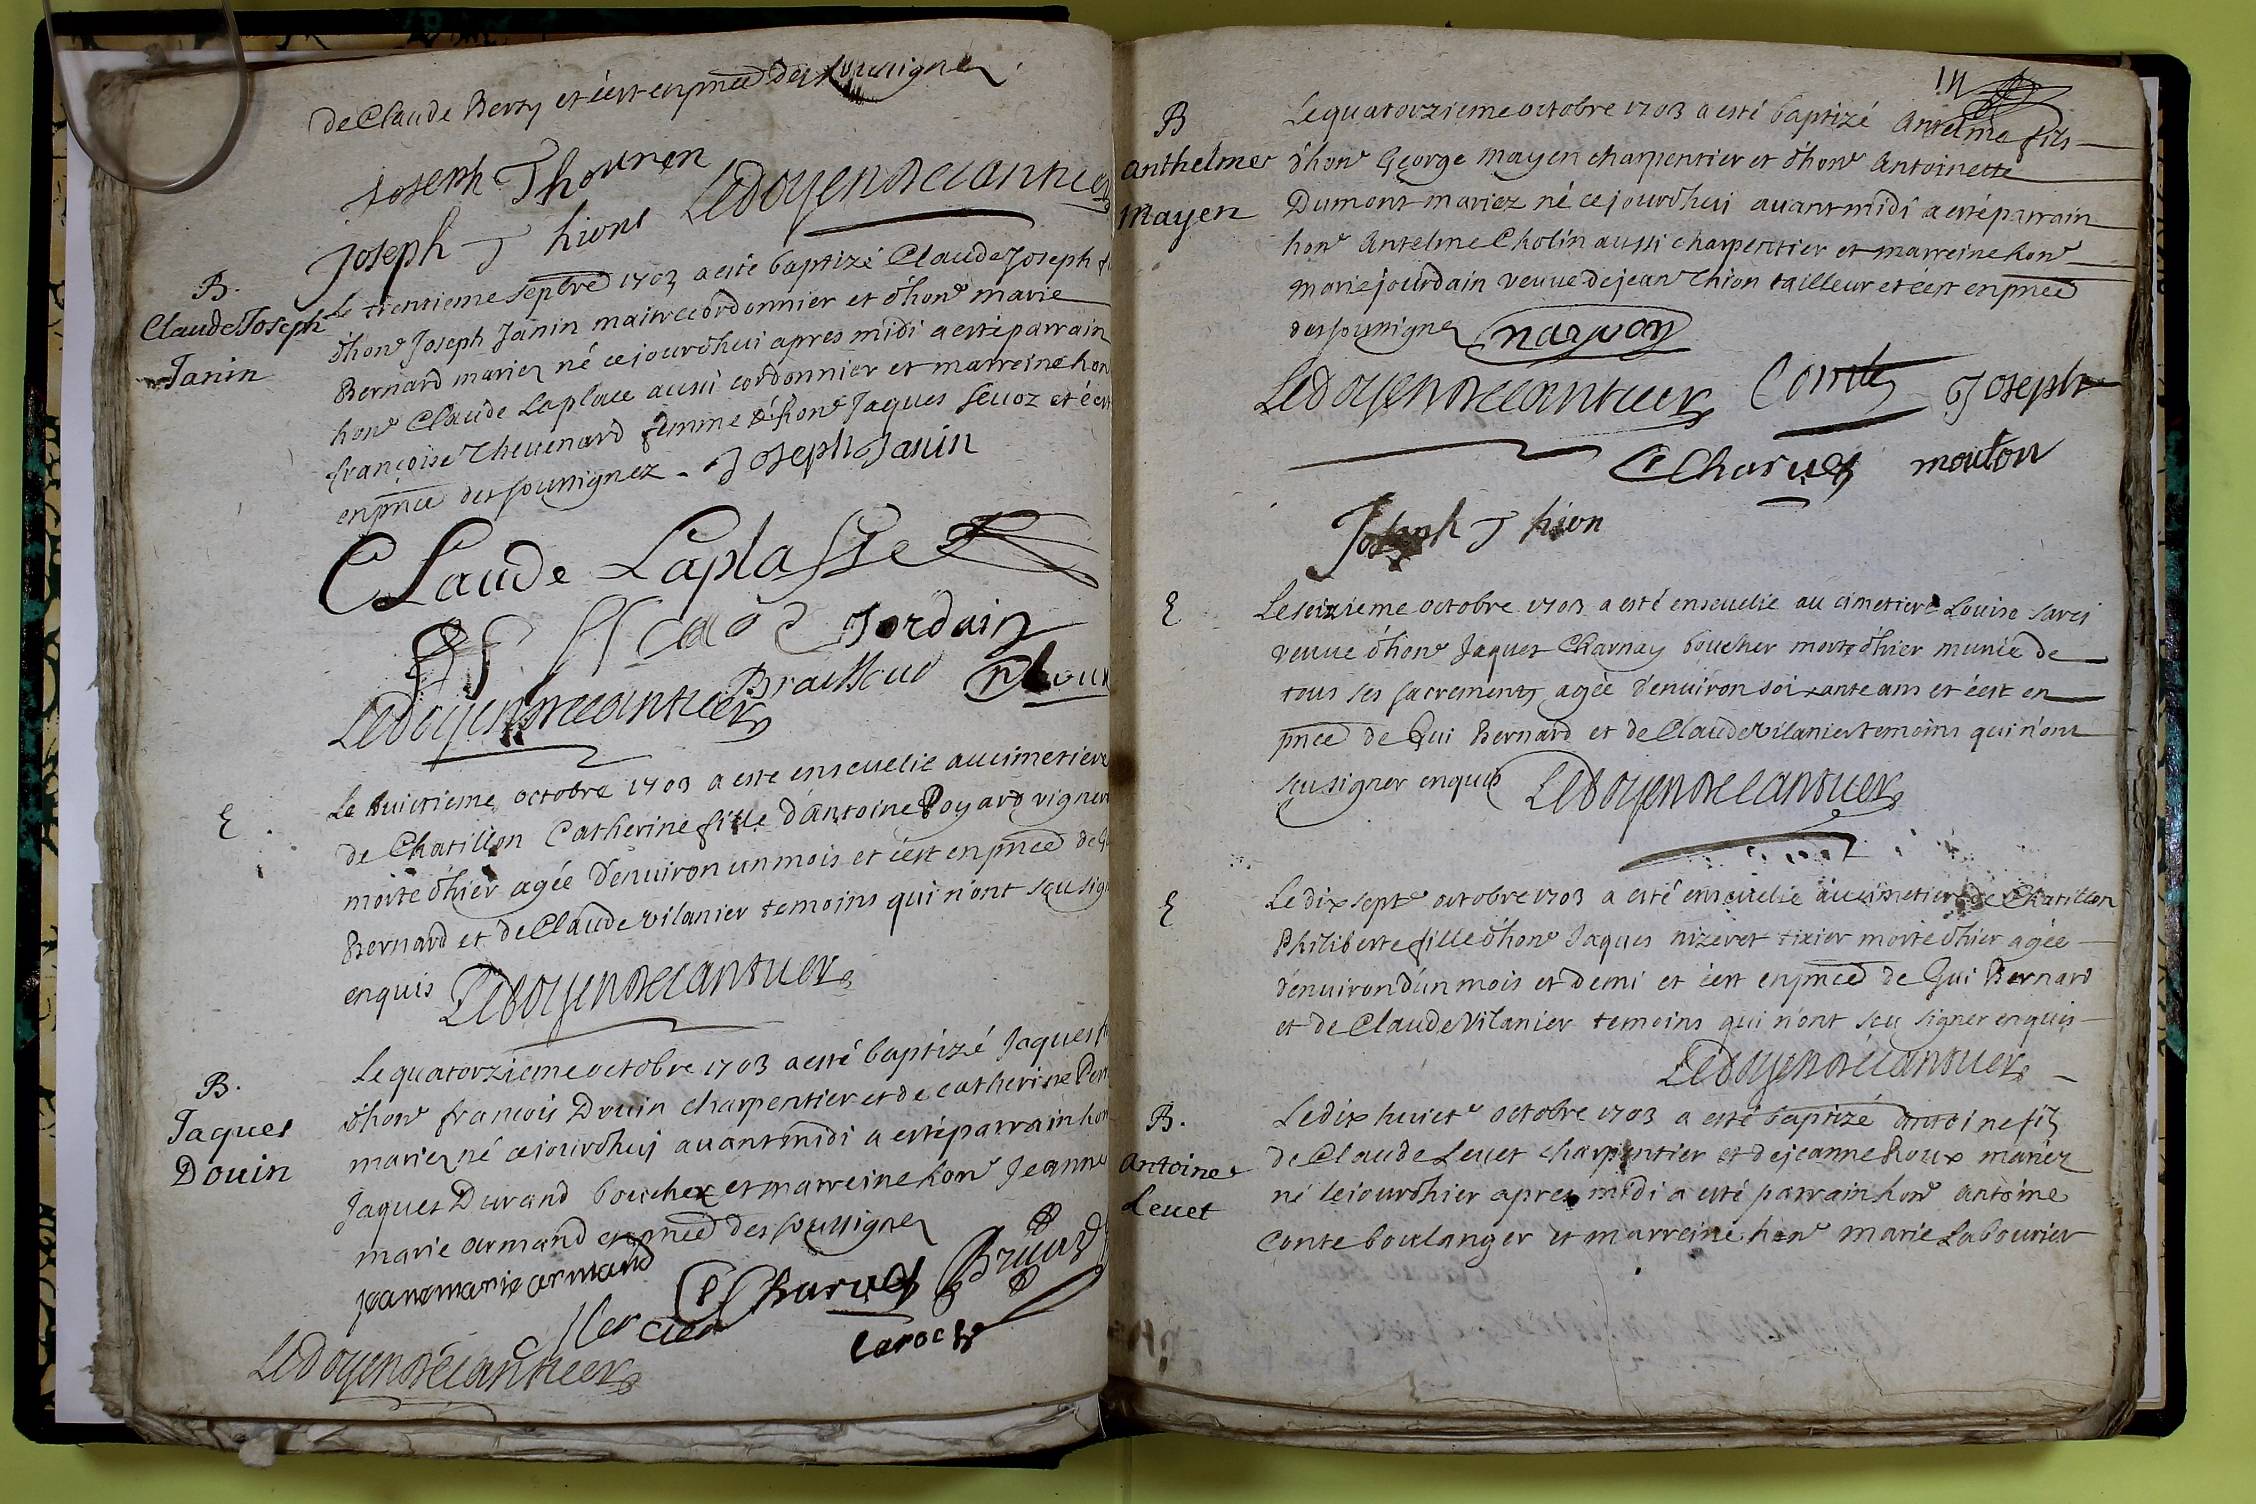 de Claude Berry et c'est en pnce des soussignez
Joseph Thouren
Joseph Thiont Ledoyen
B.
Claude Joseph
Janin
Le trentieme sepbre 1703 a esté baptizé Claude Joseph
d'hone Joseph Janin maitre cordonnier et d'hone marie
Bernard mariez né cejourdhui apres midi a esté parrain
hone Claude Laplace aussi cordonnier et marreine hon
françoise Thevenard femme d'hone Jaques sevoz et c'est
en pnce des soussignez - Joseph Janin
Claude Laplasse
Jordain
Ledoyen
E.
Le huictieme octobre 1703 a esté ensevelie au cimetiere
de Chatillon Catherine fille d'Antoine Poyard vigner
morte d'hier agée d'environ un mois et c'est en pnce de
Bernard et de Claude vilanier temoins qui n'ont sçu sig
enquis Ledoyen
B.
Jaques
Douin
Le quatorzieme octobre 1703 a esté baptizé Jaques
d'hone francois Drouin charpentier et de catherine
mariez né cejourdhuj avant midi a esté parrain hon
Jaques Durand boucher et marreine hone Jeanne
marie armand en pnce des soussignez
jeane marie armand
C Charvet
Mercier
Laroche
Ledoyen
B
Anthelme
Mayen
Le quatorzieme octobre 1703 a esté baptizé Antelme fils
d'hone George mayen charpentier et d'hone Antoinette
Dumont mariez né cejourdhui avant midi a esté parrain
hone Antelme Cholin aussi charpentier et marreine hone
marie jourdain veuve de jean Thion tailleur et c'est en pnce
des soussignez
Ledoyen Comte Joseph
C Charvet mouton
Joseph Thion
E
Le seizieme octobre 1703 a esté ensevelie au cimetiere Louise
veuve d'hone Jaques Charnay boucher morte d'hier munie de
tous ses sacrements agée d'environ soixante ans et c'est en
pnce de Gui Bernard et de Claude vilanier temoins qui n'ont
sçu signer enquis Ledoyen
E
Le dix septe octobre 1703 a esté ensevelie au cimetiere de Chatillon
Philiberte fille d'hone Jaques nizeret tixier morte d'hier agée
d'environ d'un mois et demi et c'est en pnce de Gui Bernard
et de Claude Vilanier temoins qui n'ont sçu signer enquis
Ledoyen
B.
Antoine
Levet
Le dix huicte octobre 1703 a esté baptizé Antoine fils
de Claude Levet charpentier et de jeanne Roux mariez
né lejourdhier apres midi a esté parrain hone Antoine
Conte boulanger et marreine hone marie Labourier